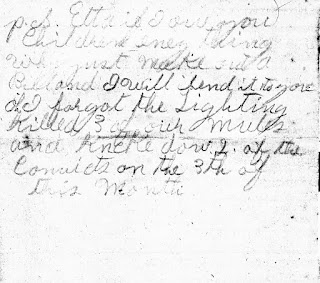 p.s. Etta if I ow you
Children eney thing
Why just make out a
Bill and I will send it to you
I forgot the Lighting
killed 3 of our mules
and kncke dow 2 of the
Convicts on the 3th of
this Month